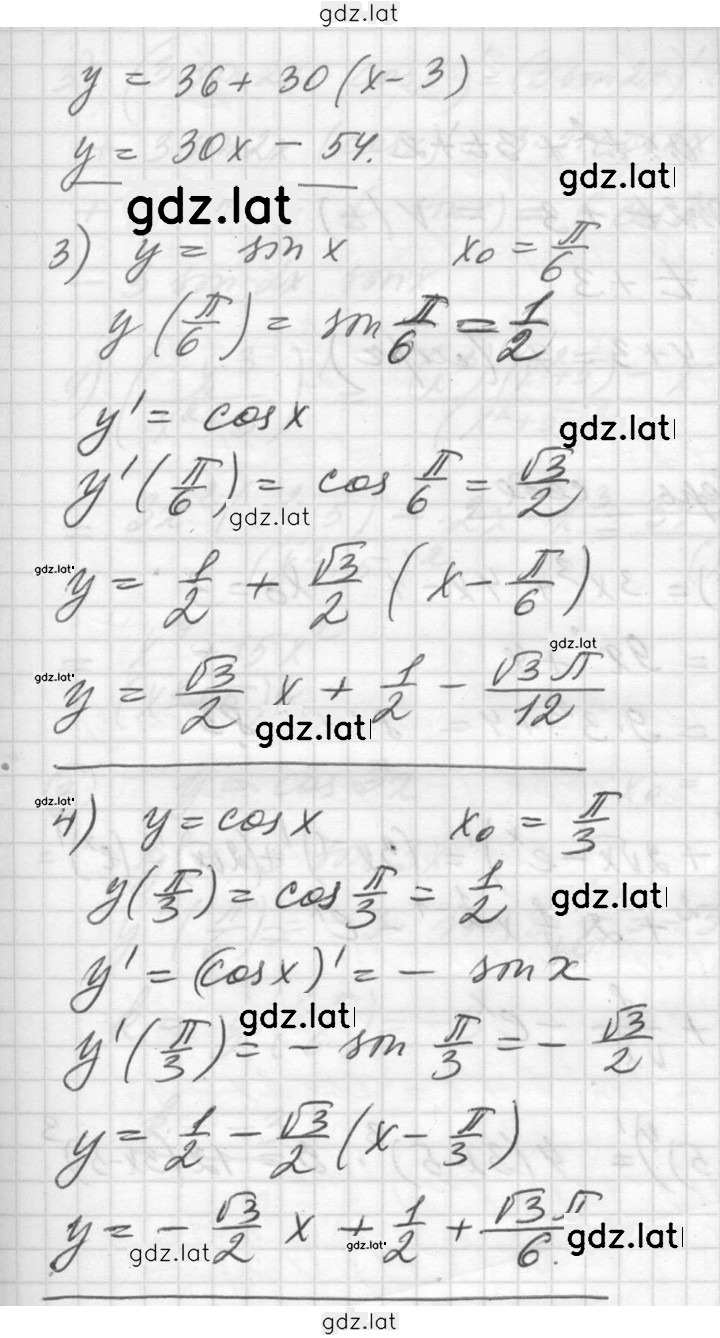 gdz.lat
y = 36 + 30 (x - 3)
y = 30x - 54.
gdz.lat
gdz.lat
3) y = sin x x₀ = π/6
y (π/6) = sin π/6 = 1/2
y' = cos x
gdz.lat
y' (π/6) = cos π/6 = √3/2
gdz.lat
gdz.lat
y = 1/2 + √3/2 (x - π/6)
gdz.lat
gdz.lat
y = √3/2 x + 1/2 - √3 π/12
gdz.lat
gdz.lat
4) y = cos x x₀ = π/3
y (π/3) = cos π/3 = 1/2
gdz.lat
y' = (cos x)' = - sin x
gdz.lat
y' (π/3) = - sin π/3 = - √3/2
y = 1/2 - √3/2 (x - π/3)
y = - √3/2 x + 1/2 + √3 π/6.
gdz.lat
gdz.lat
gdz.lat
gdz.lat